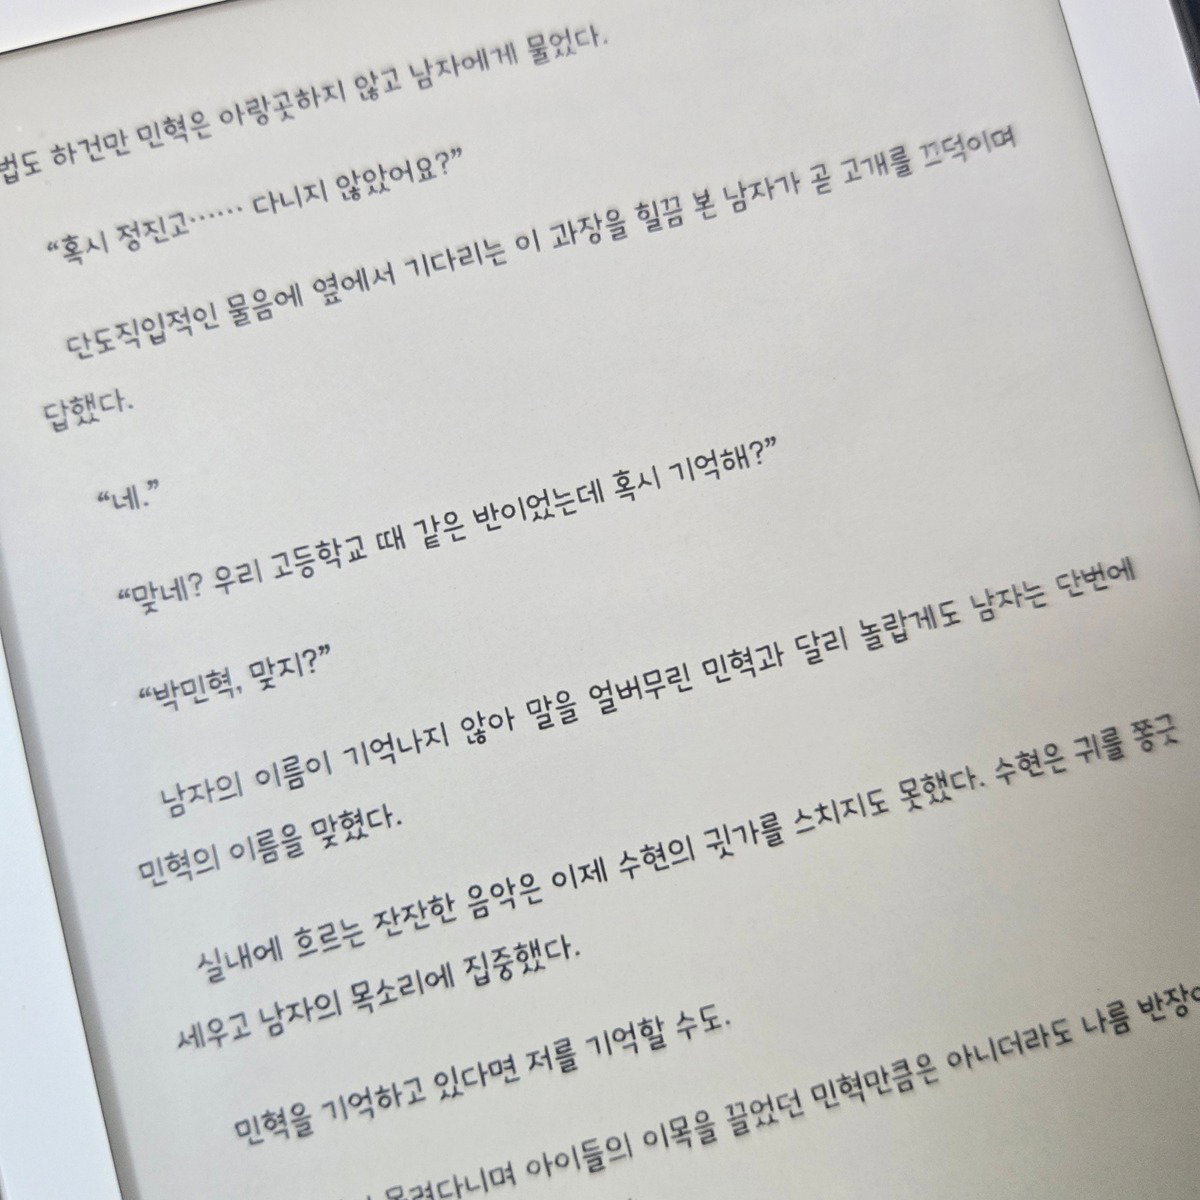 법도 하건만 민혁은 아랑곳하지 않고 남자에게 물었다.
“혹시 정진고…… 다니지 않았어요?”
단도직입적인 물음에 옆에서 기다리는 이 과장을 힐끔 본 남자가 곧 고개를 끄덕이며
답했다.
“네.”
“맞네? 우리 고등학교 때 같은 반이었는데 혹시 기억해?”
“박민혁, 맞지?”
남자의 이름이 기억나지 않아 말을 얼버무린 민혁과 달리 놀랍게도 남자는 단번에
민혁의 이름을 맞혔다.
실내에 흐르는 잔잔한 음악은 이제 수현의 귓가를 스치지도 못했다. 수현은 귀를 쫑긋
세우고 남자의 목소리에 집중했다.
민혁을 기억하고 있다면 저를 기억할 수도.
몰려다니며 아이들의 이목을 끌었던 민혁만큼은 아니더라도 나름 반장